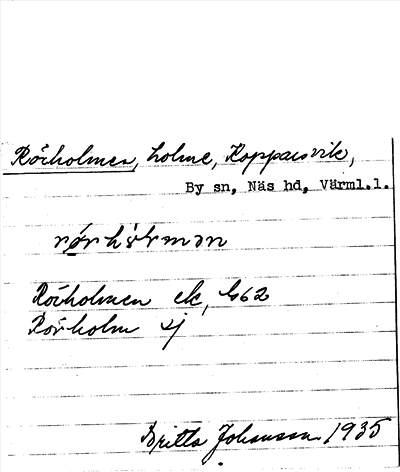 Rörholmen, holme, Kopparsvik,
By sn, Näs hd, Värml.l.
Rörholmen ek, G62
Rörholm sj
Britta Johansson 1935